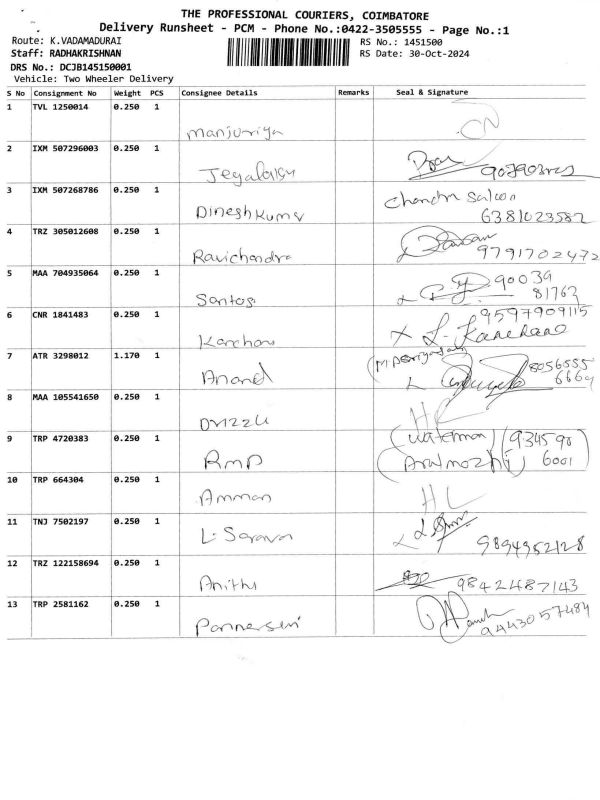 THE PROFESSIONAL COURIERS, COIMBATORE
Delivery Runsheet - PCM - Phone No.:0422-3505555 - Page No.:1
Route: K.VADAMADURAI RS No.: 1451500
Staff: RADHAKRISHNAN RS Date: 30-Oct-2024
DRS No.: DCJB145150001
Vehicle: Two Wheeler Delivery
S No Consignment No Weight PCS Consignee Details Remarks Seal & Signature
1 TVL 1250014 0.250 1
Manjuriya
2 IXM 507296003 0.250 1
3 IXM 507268786 0.250 1 Chandra Saloon
Dineshkumar 6381023582
4 TRZ 305012608 0.250 1
Ravichandra 9791702472
5 MAA 704935064 0.250 1 90039
Santos 81763
6 CNR 1841483 0.250 1 9597909115
7 ATR 3298012 1.170 1 8056555
Anand 6669
8 MAA 105541650 0.250 1
9 TRP 4720383 0.250 1 (Waterman) (934590
RMP (Arulmozhi) 6001
10 TRP 664304 0.250 1
Amman HL
11 TNJ 7502197 0.250 1
L. Sarava 9894952128
12 TRZ 122158694 0.250 1
Anithi 9842487143
13 TRP 2581162 0.250 1
9443057484